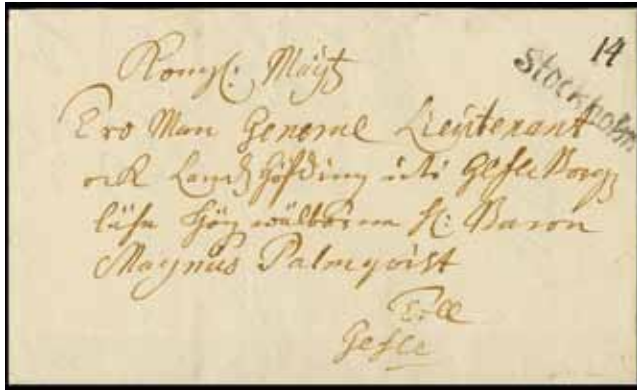 14
Stockholm
Kongl: Maÿtz
Tro Man General Lieutenant
ock Landzhöfding uti Gefleborgz
lähn Hög wälborne H: Baron
Magnus Palmqvist
Gefle